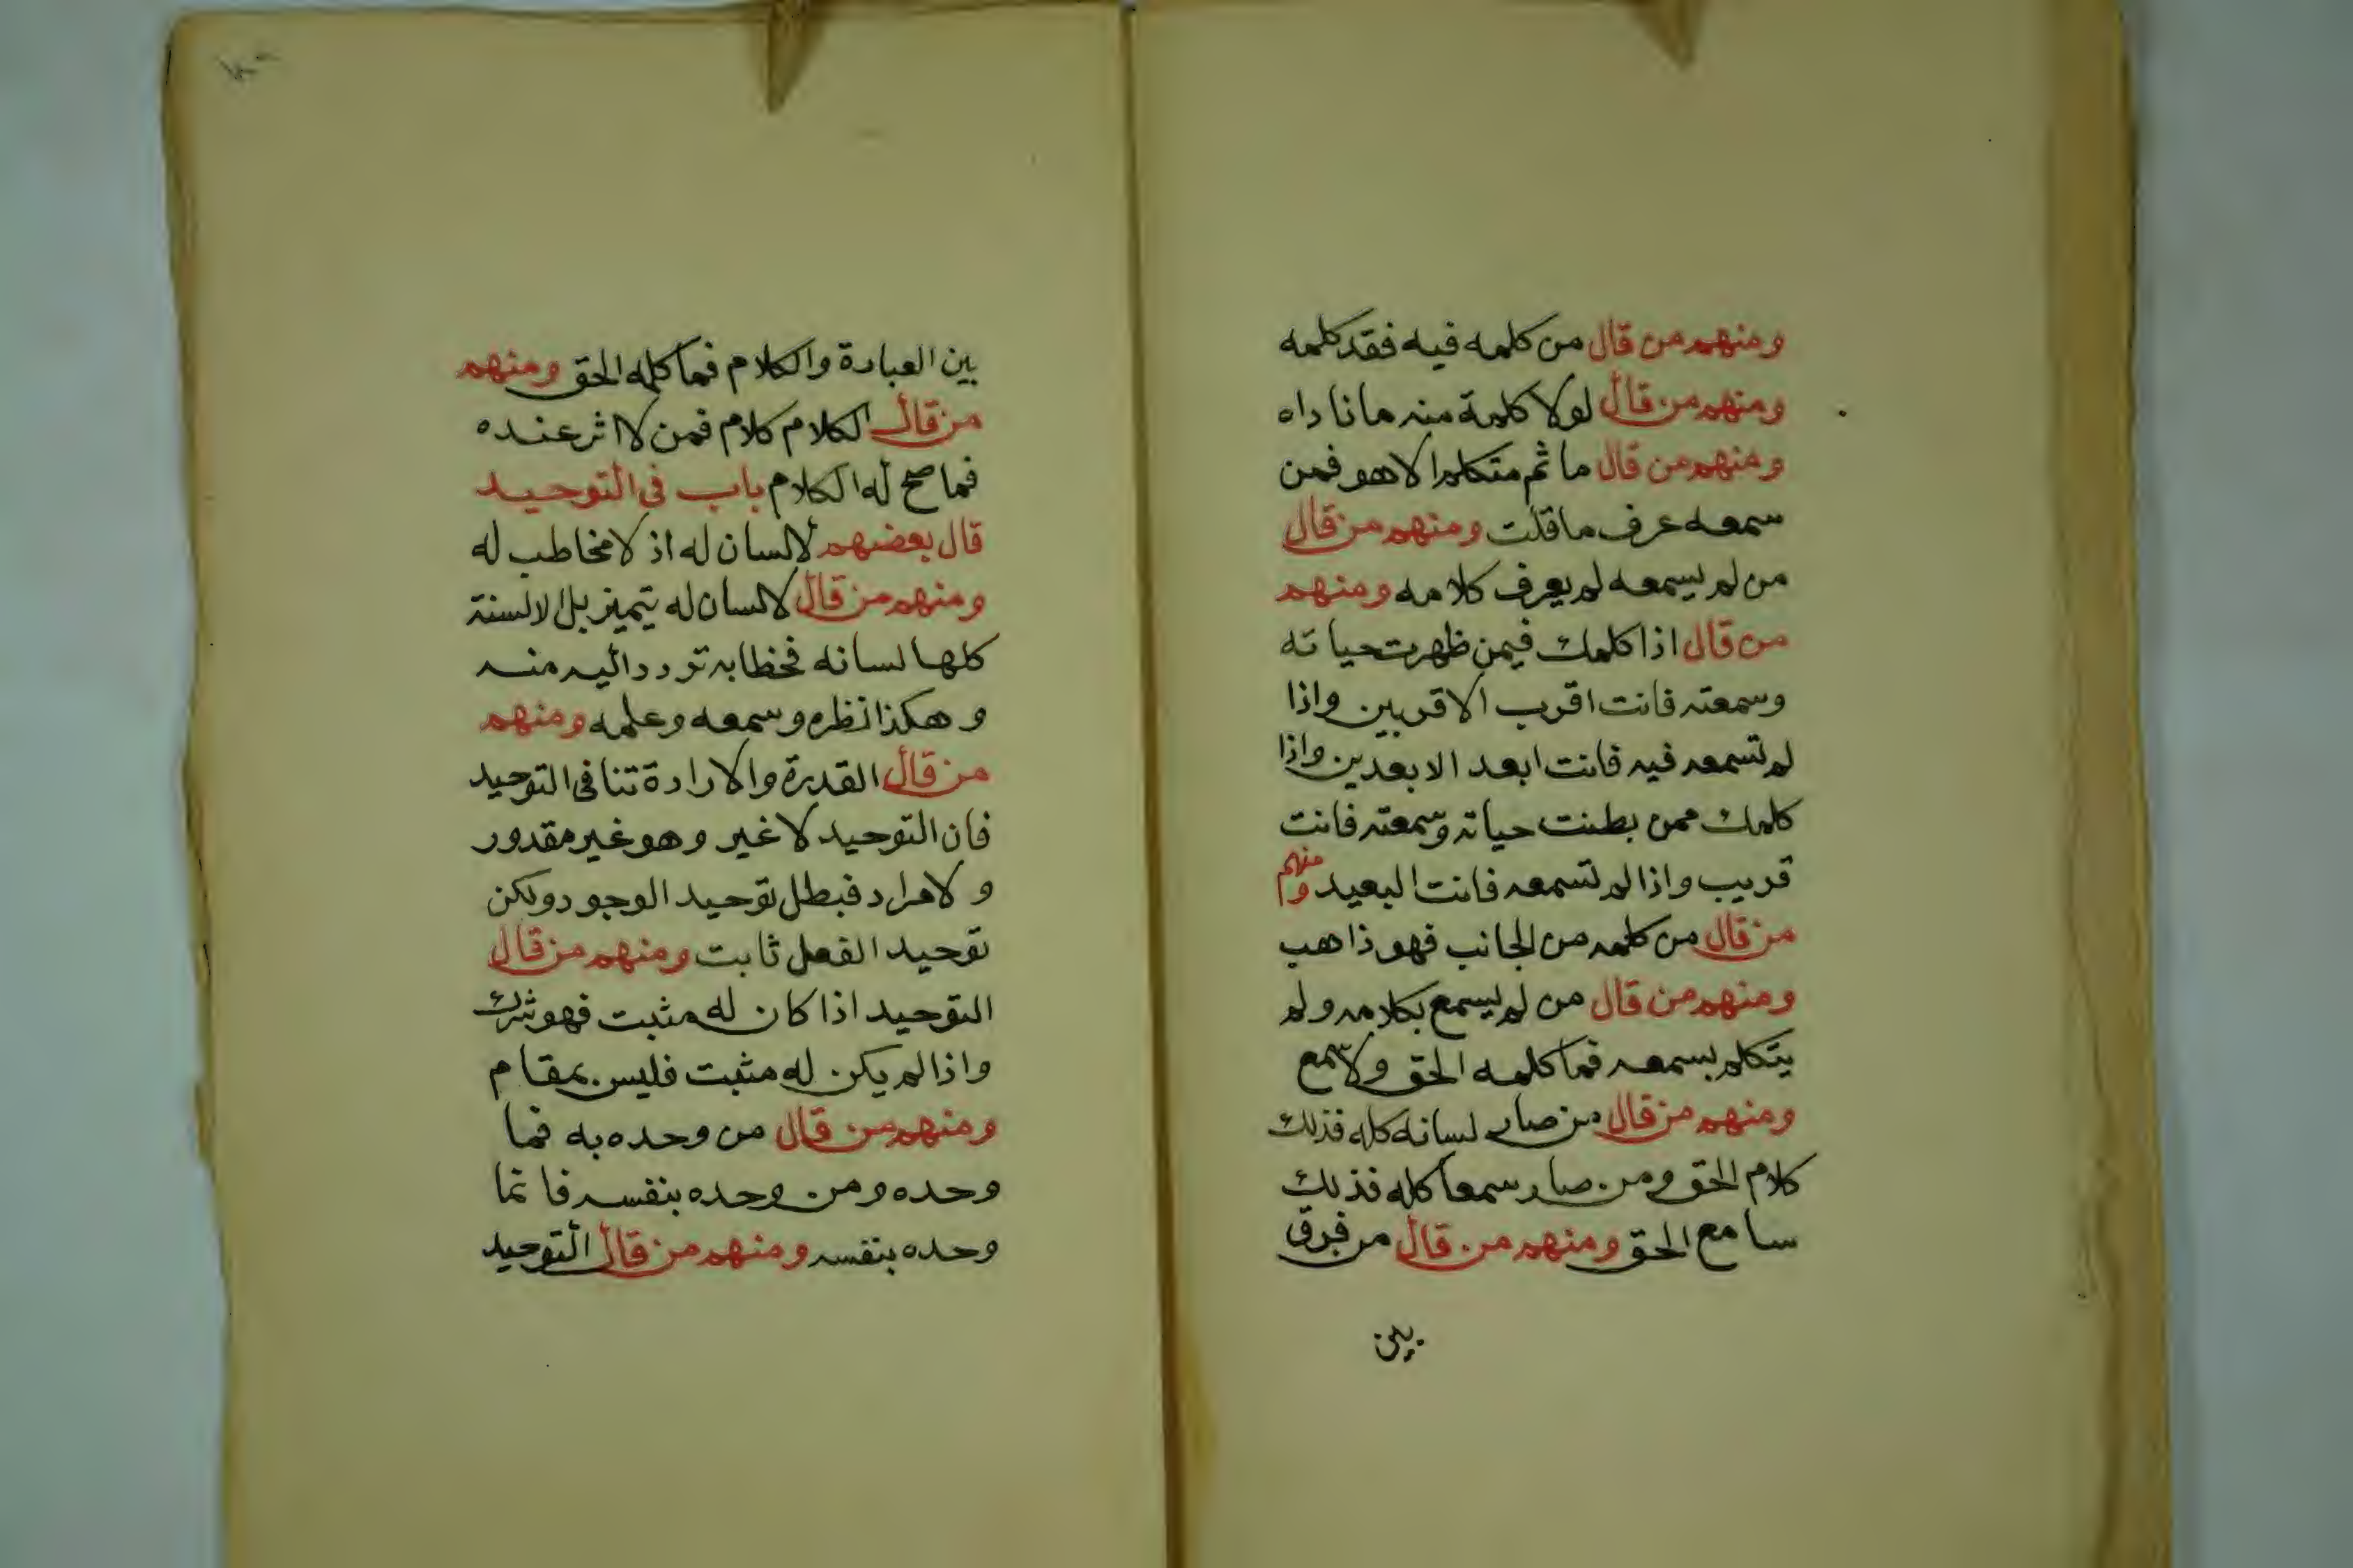 ومنهم من قال من كلمه فيه فقد كلمه
ومنهم من قال لولا كلمة منه ما ناداه
ومنهم من قال ما ثم متكلم الا هو فمن
سمعه عرف ما قلت ومنهم من قال
من لم يسمعه لم يعرف كلامه ومنهم
من قال اذا كلمك فيمن ظهرت حياته
وسمعته فانت اقرب الاقربين واذا
لم تسمعه فيه فانت ابعد الابعدين واذا
كلمك ممن بطنت حياته وسمعته فانت
قريب واذا لم تسمعه فانت البعيد ومنهم
من قال من كلمه من الجانب فهو ذاهب
ومنهم من قال من لم يسمع بكلامه ولم
يتكلم بسمعه فما كلمه الحق ولا سمع
ومنهم من قال من صار لسانه كله فذلك
كلام الحق ومن صار سمعا كله فذلك
سامع الحق ومنهم من قال من فرق
بين
بين العبادة والكلام فما كلمه الحق ومنهم
من قال الكلام كلام فمن لا اثر عنده
فما صح له الكلام باب في التوحيد
قال بعضهم لا لسان له اذ لا مخاطب له
ومنهم من قال لا لسان له يتميز بل الالسنة
كلها لسانه فخطابه تردد اليه منه
وهكذا نظره وسمعه وعلمه ومنهم
من قال القدرة والارادة تنافي التوحيد
فان التوحيد لا غير وهو غير مقدور
ولا مراد فبطل توحيد الوجود ولكن
توحيد الفعل ثابت ومنهم من قال
التوحيد اذا كان له مثبت فهو شرك
واذا لم يكن له مثبت فليس بمقام
ومنهم من قال من وحده به فما
وحده ومن وحده بنفسه فانما
وحده بنفسه ومنهم من قال التوحيد